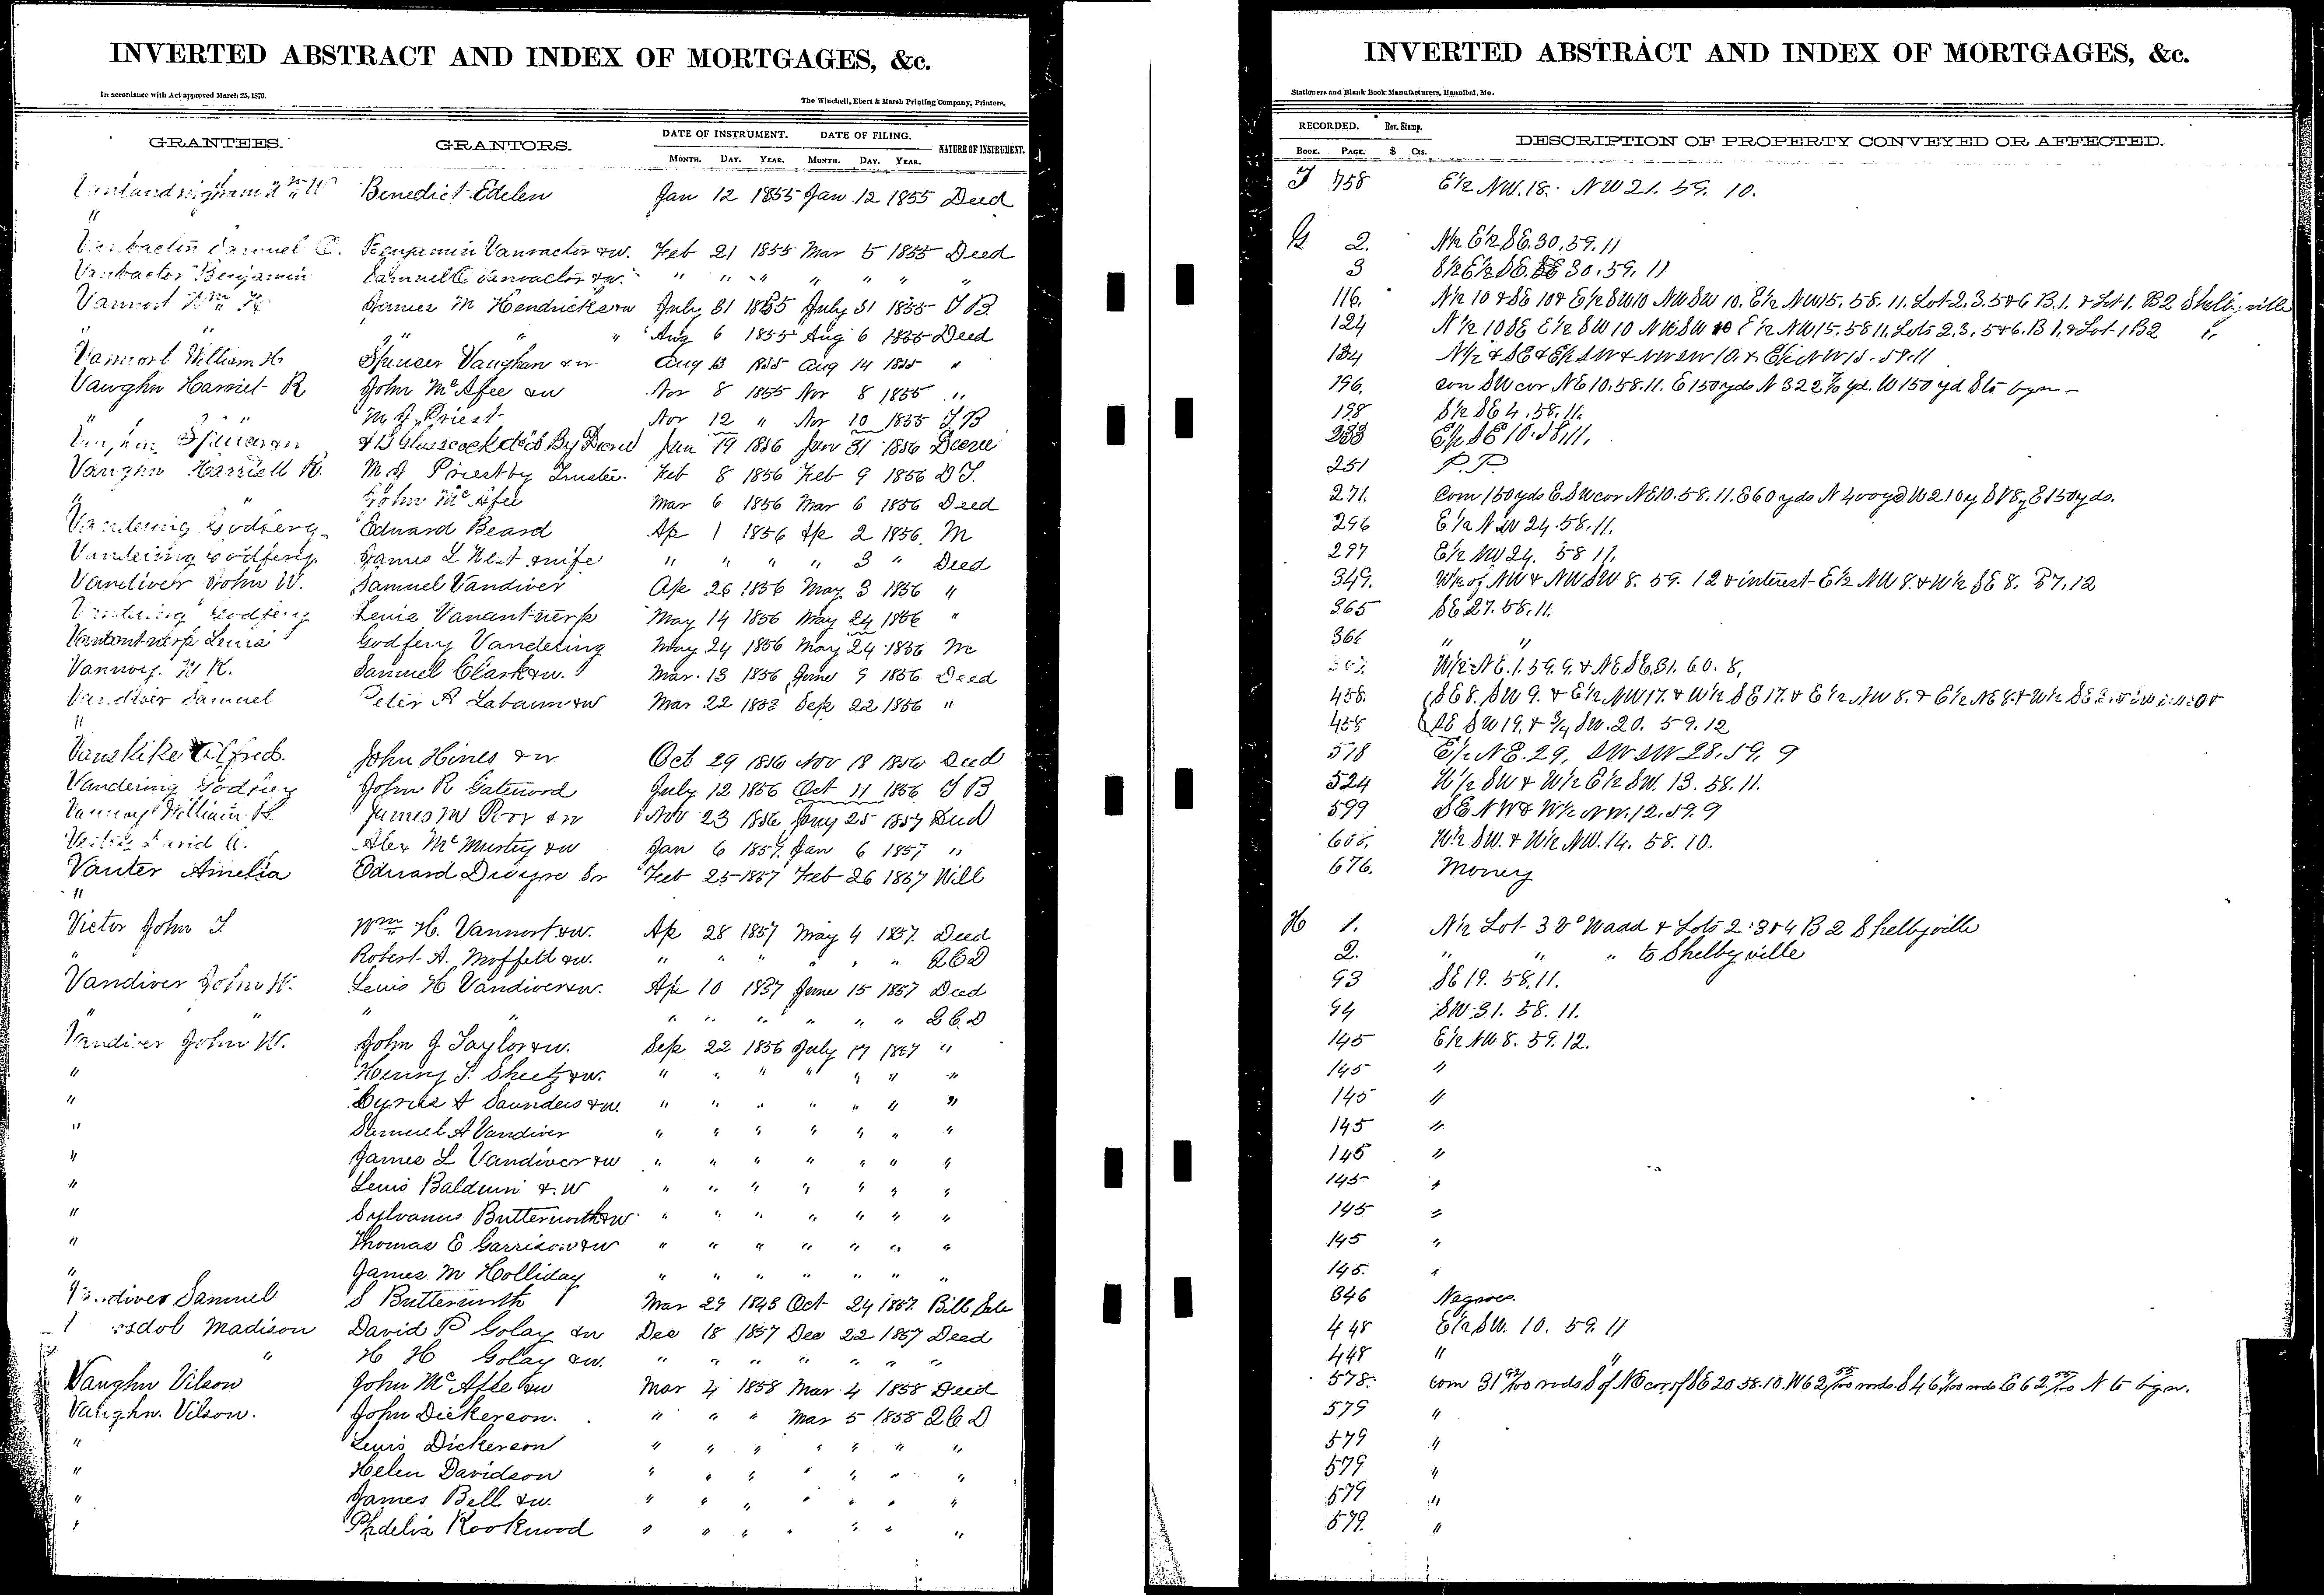 INVERTED ABSTRACT AND INDEX OF MORTGAGES, &c.
In accordance with Act approved March 25, 1870.
The Winchell, Ebert & Marsh Printing Company, Printers,
GRANTEES. GRANTORS. DATE OF INSTRUMENT. DATE OF FILING. NATURE OF INSTRUMENT.
MONTH. DAY. YEAR. MONTH. DAY. YEAR.
Benedict Edelen Jan 12 1855 Jan 12 1855 Deed
"
Samuel C. Benjamin Vanvactor &w. Feb 21 1855 Mar 5 1855 Deed
Benjamin Samuel C Vanvactor &w. " " " " " "
Vannort Wm H James M Hendricks &w July 31 1855 July 31 1855 T B
" " " " Aug 6 1855 Aug 6 1855 Deed
Vannort William H Spencer Vaughan &w Aug 13 1855 Aug 14 1855 "
Vaughn Harriet R John McAfee &w Nov 8 1855 Nov 8 1855 "
" " M J Priest Nov 12 " Nov 10 1855 T B
Glasscock By Jan 19 1856 Jan 31 1856 Decree
Vaughn Harriett R. M J Priest by Trustee. Feb 8 1856 Feb 9 1856 D T.
" " John McAfee Mar 6 1856 Mar 6 1856 Deed
Vandering Godferg Edward Beard Ap 1 1856 Ap 2 1856. M
Vandering Godferg James L West &wife " " " " 3 " Deed
Vandiver John W. Samuel Vandiver Ap 26 1856 May 3 1856 "
Vandering Godferg Lewis Vanantwerp May 14 1856 May 24 1856 "
Vanantwerp Lewis Godfery Vandering May 24 1856 May 24 1856 M
Vannoy. W R. Samuel Clark &w. Mar. 13 1856 June 9 1856 Deed
Vandiver Samuel Peter A Labaum &w Mar 22 1853 Sep 22 1856 "
"
Vanskike Alfred. John Hines &w Oct 29 1856 Nov 18 1856 Deed
Vandering Godfrey John R Gatewood July 12 1856 Oct 11 1856 T B
Vannoy William R. James M Poor &w Nov 23 1856 Jany 25 1857 Deed
David Alex McMurtry &w Jan 6 1857. Jan 6 1857 "
Vanter Amelia Edward Sr Feb 25 1857 Feb 26 1857 Will
"
Victor John S Wm H. Vannort &w. Ap 28 1857 May 4 1857. Deed
" Robert A. Moffett &w. " " " " " " Q C D
Vandiver John W. Lewis H Vandiver &w. Ap 10 1857 June 15 1857 Deed
" " " " " " " " Q C. D
Vandiver John W. John G Taylor &w. Sep 22 1856 July 17 1857 "
" Henry S. Sheetz &w. " " " " " " "
" Cyrus A Saunders &w. " " " " " " "
" Samuel A Vandiver " " " " " " "
" James L Vandiver &w " " " " " " "
" Lewis Baldwin & W " " " " " " "
" Sylvanus Butterworth &w " " " " " " "
" Thomas E Garrison &w " " " " " " "
" James M Holliday " " " " " " "
Vandiver Samuel S Butterworth Mar 29 1848 Oct 24 1857. Bill Sale
Madison David P Golay &w Dec 18 1857 Dec 22 1857 Deed
" H H Golay &w. " " " " " " "
Vaughn Vilson John McAfee &w Mar 4 1858 Mar 4 1858 Deed
Vaughn. Vilson. John Dickerson. " " " Mar 5 1858 Q C D
" Lewis Dickerson " " " " " " "
" Helen Davidson " " " " " " "
" James Bell &w. " " " " " " "
" Phdelia Rookwood " " " " " " "
INVERTED ABSTRACT AND INDEX OF MORTGAGES, &c.
Stationers and Blank Book Manufacturers, Hannibal, Mo.
RECORDED. Rev. Stamp. DESCRIPTION OF PROPERTY CONVEYED OR AFFECTED.
BOOK. PAGE. $ Cts.
758 E½ NW. 18. NW 21. 59. 10.
G 2. N½ E½ SE. 30. 59. 11
3 S½ E½ SE. 30. 59. 11
116. N½ 10 & SE 10 & E½ SW 10 NW SW 10. E½ NW 15. 58. 11. Lot 2. 3. 5 & 6 B. 1. & Lot 1. B2 Shelbyville
124 N½ 10 SE E½ SW 10 NW SW 10 E½ NW 15. 58 11. Lots 2. 3. 5 & 6. B 1. & Lot 1 B2 "
134 N½ & SE & E½ SW & NW SW 10. & E½ NW 15. 58. 11
196. SW cor NE 10. 58. 11. E 150 yds N 322 yd. W 150 yd S to bgn
198 S½ SE 4. 58. 11.
233 E½ SE 10. 58. 11.
251 P. P.
271. Com 150 yds E. SW cor NE 10. 58. 11. E 60 yds N 400 yd W 210 y E 150 yds.
296 E½ NW 24. 58. 11.
297 E½ NW 24. 58 11.
349. W½ of NW & NW SW 8. 59. 12 & interest E½ NW 8. & W½ SE 8. 57. 12
365 SE 27. 58. 11.
366 " "
W½ NE. 1. 59. 9. & NE SE. 31. 60. 8.
458. SE 8. SW 9. & E½ NW 17. & W½ SE 17. & E½ NW 8. & E½ NE 8. & W½
458 SE SW 19. & ¾ SW. 20. 59. 12
518 E½ NE. 29. SW SW 28. 59. 9
524 W½ SW & W½ E½ SW. 13. 58. 11.
599 SE NW & W½ NW. 12. 59. 9
608. W½ SW. & W½ NW. 14. 58. 10.
676. Money
H 1. N½ Lot 3 Waad & Lots 2. 3 & 4 B 2 Shelbyville
2. " " " to Shelbyville
93 SE 19. 58. 11.
94 SW 31. 58. 11.
145 E½ NW 8. 59. 12.
145 "
145 "
145 "
145 "
145 "
145 "
145 "
145. "
346 Negroes.
448 E½ SW. 10. 59. 11
448 " "
578. com 31 rods S of NE cor. of SE 20. 58. 10. W 62 rods. S 46 rods E 62 N to bgn.
579 "
579 "
579 "
579 "
579. "